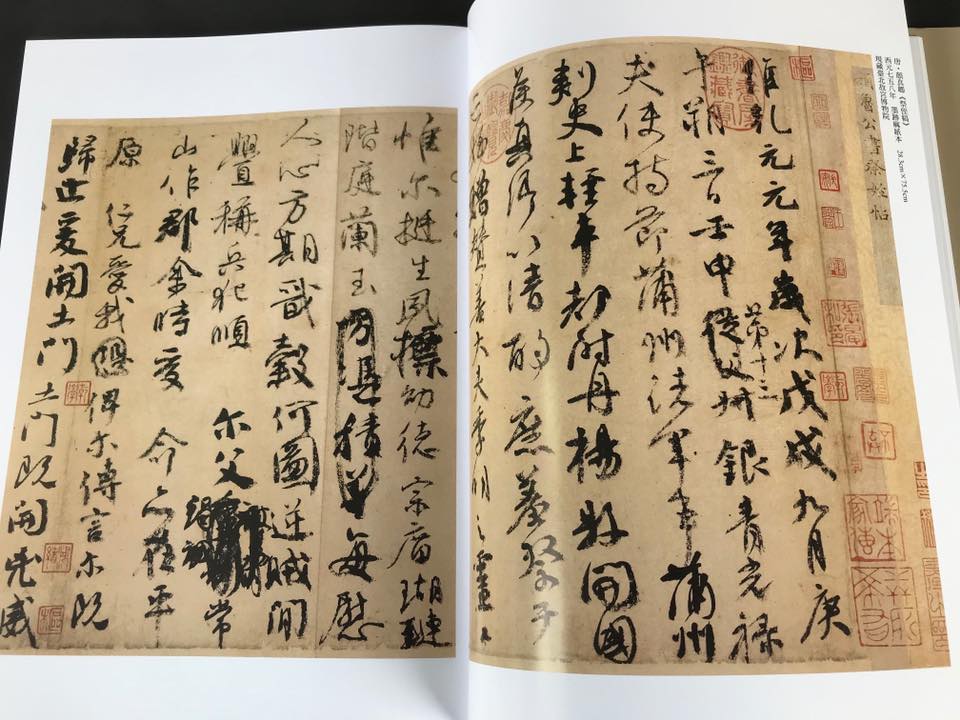 唐·顏真卿《祭侄稿》 28.3cm×75.5cm
西元七五八年 墨跡藏紙本
現藏臺北故宮博物院
魯公書祭姪帖
維乾元元年歲次戊戌九月庚
午朔三日壬申第十三從父銀青光祿
夫使持節蒲州諸軍事蒲州
刺史上輕車都尉丹楊縣開國
侯真卿以清酌庶羞祭于
亡姪贈贊善大夫季明之靈曰
惟尔挺生夙標幼德宗廟瑚璉
階庭蘭玉方憑積善每慰
人心方期戩穀何圖逆賊間
釁稱兵犯順 尔父 常
山作郡余時受 命亦在平
原 仁兄愛我 俾尔傳言尔既
歸止爰開土門土門既開凶威